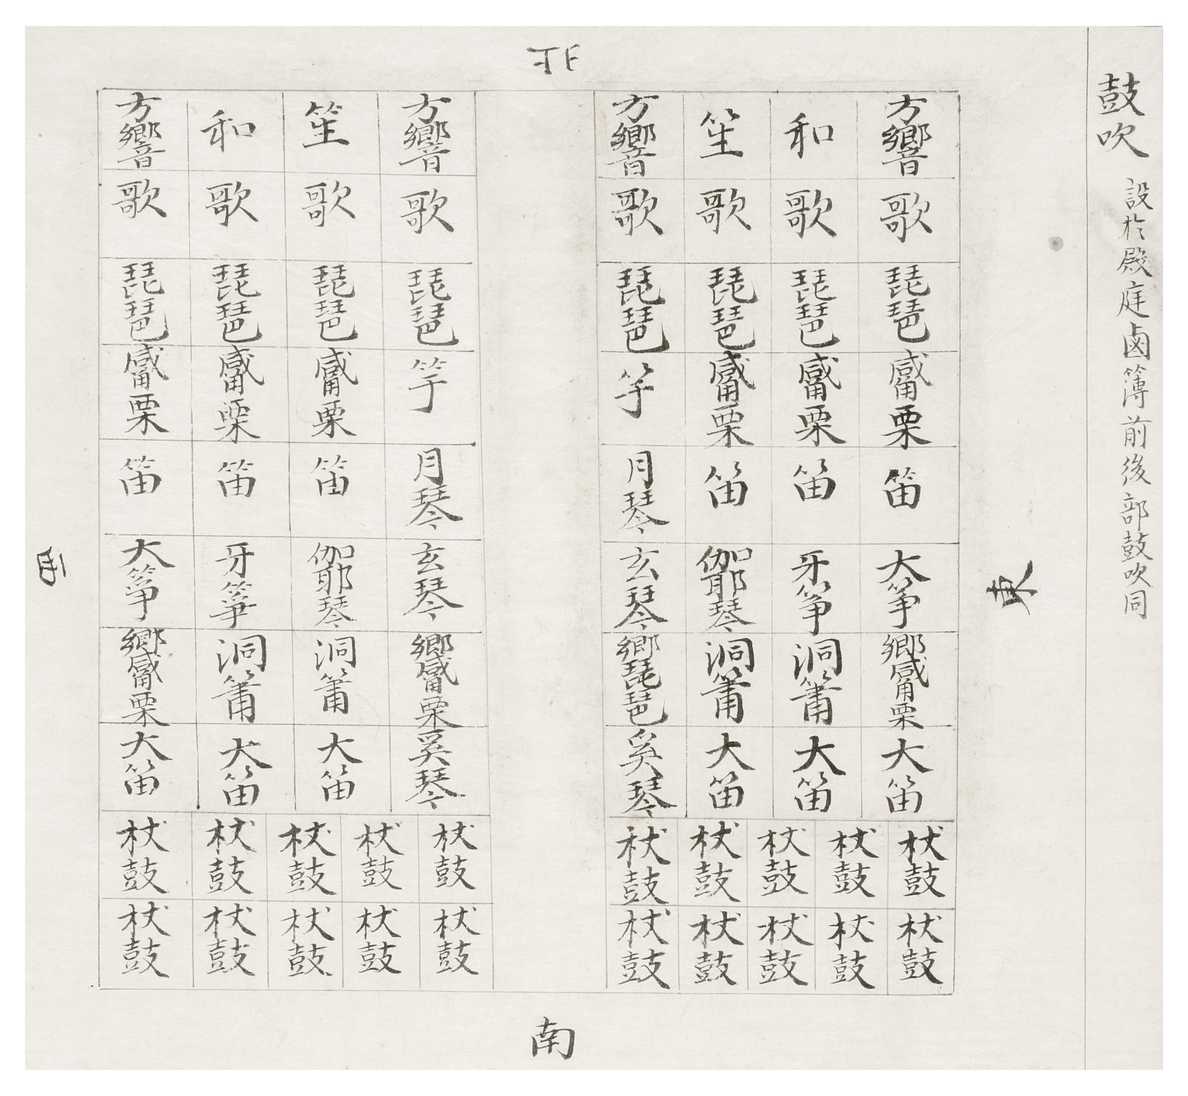 鼓吹 設於殿庭鹵簿前後部鼓吹同
北
東
方響 和 笙 方響 方響 笙 和 方響
歌 歌 歌 歌 歌 歌 歌 歌
琵琶 琵琶 琵琶 琵琶 琵琶 琵琶 琵琶 琵琶
觱栗 觱栗 觱栗 竽 竽 觱栗 觱栗 觱栗
笛 笛 笛 月琴 月琴 笛 笛 笛
大箏 牙箏 伽耶琴 玄琴 玄琴 伽耶琴 牙箏 大箏
鄕觱栗 洞簫 洞簫 鄕琵琶 鄕觱栗 洞簫 洞簫 鄕觱栗
大笛 大笛 大笛 奚琴 奚琴 大笛 大笛 大笛
杖鼓 杖鼓 杖鼓 杖鼓 杖鼓 杖鼓 杖鼓 杖鼓 杖鼓 杖鼓
杖鼓 杖鼓 杖鼓 杖鼓 杖鼓 杖鼓 杖鼓 杖鼓 杖鼓 杖鼓
西
南